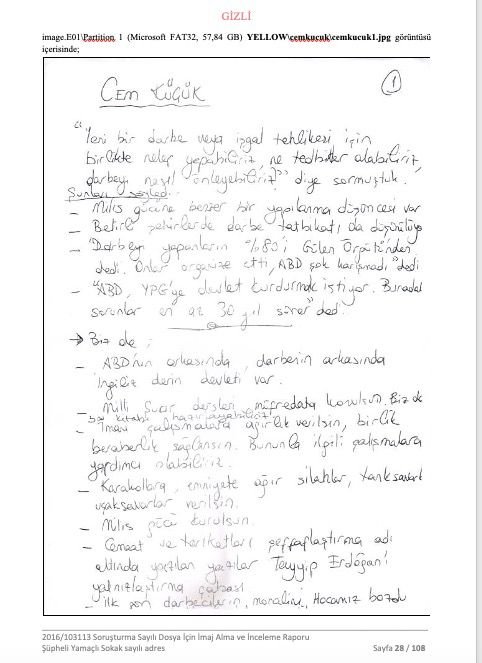 GİZLİ
image.E01\Partition 1 (Microsoft FAT32, 57,84 GB) YELLOW\cemkucuk\cemkucuk1.jpg görüntüsü
içerisinde;
CEM KÜÇÜK
1
"Yeni bir darbe veya işgal tehlikesi için
birlikte neler yapabiliriz, ne tedbirler alabiliriz,
darbeyi nasıl önleyebiliriz?" diye sormuştuk.
Şunları söyledi
– Milis gücüne benzer bir yapılanma düşüncesi var
– Belirli şehirlerde darbe tatbikatı da düşünülüyo
– "Darbeyi yapanların %80'i Gülen Örgütü'nden
dedi. Onlar organize etti, ABD çok karışmadı" dedi
– "ABD, YPG'ye devlet kurdurmak istiyor. Buradaki
sorunlar en az 30 yıl sürer" dedi.
→ Biz de;
– ABD'nin arkasında, darbenin arkasında
İngiliz derin devleti var.
– Milli Şuur dersleri müfredata konulsun. Biz de
kitabı hazırlayabiliriz
İmani çalışmalara ağırlık verilsin, birlik
beraberlik sağlansın. Bununla ilgili çalışmalara
yardımcı olabiliriz.
– Karakollara, emniyete ağır silahlar, tanksavar
uçaksavarlar verilsin.
– Milis gücü kurulsun.
– Cemaat ve tarikatları şeffaflaştırma adı
altında yazılan yazılar Tayyip Erdoğan'ı
yalnızlaştırma çabası
– İlk gün darbecilerin, moralini, Hocamız bozdu
2016/103113 Soruşturma Sayılı Dosya İçin İmaj Alma ve İnceleme Raporu
Şüpheli Yamaçlı Sokak sayılı adres
Sayfa 28 / 108